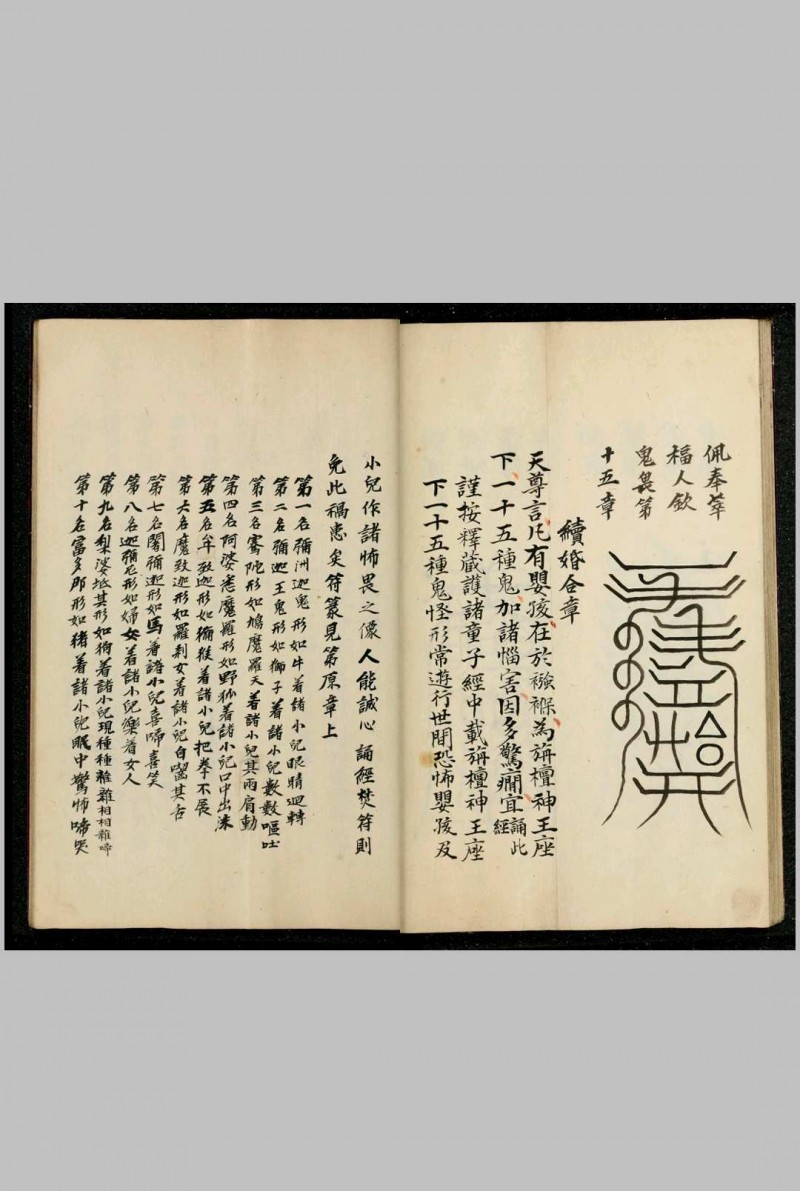 佩奉萃
福人欽
鬼畏第
十五章
續婚合章
天尊言凡有嬰孩在於襁褓為旃檀神王座
下一十五種鬼加諸惱害因多驚癇宜誦此經
謹按釋藏護諸童子經中載旃檀神王座
下一十五種鬼怪形常遊行世間恐怖嬰孩及
小兒作諸怖畏之像人能誠心誦經焚符則
免此禍患矣符篆見第原章上
第一名彌洲迦鬼形如牛着諸小兒眼睛迴轉
第二名彌迦王鬼形如獅子着諸小兒數數嘔吐
第三名騫陀形如鳩魔羅天着諸小兒其兩肩動
第四名阿婆悉魔羅形如野狐着諸小兒口中出沫
第五名牟致迦形如獼猴着諸小兒把拳不展
第六名魔致迦形如羅刹女着諸小兒自嚙其舌
第七名闍彌迦形如馬着諸小兒喜啼喜笑
第八名迦彌尼形如婦女着諸小兒樂着女人
第九名梨婆坻其形如狗着諸小兒現種種雜雜相相雜啼
第十名富多那形如猪着諸小兒眠中驚怖啼哭